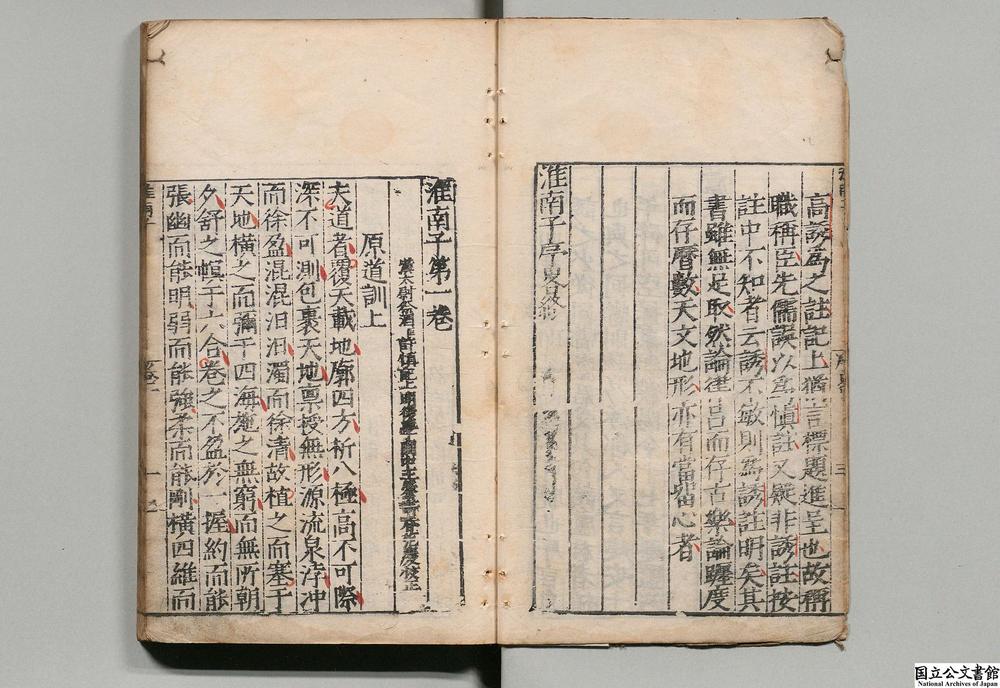 高誘爲之註記上猶言標題進呈也故稱
職稱臣先儒誤以爲慎註又疑非誘註按
註中不知者云誘不敏則爲誘註明矣其
書雖無足取然論律呂而存古樂論躔度
而存曆數天文地形亦有當留心者
淮南子序
淮南子第一卷
漢太尉祭酒上許慎記上
原道訓上
夫道者覆天載地廓四方柝八極高不可際
深不可測包裹天地禀授無形源流泉浡冲
而徐盈混混汩汩濁而徐清故植之而塞于
天地橫之而彌于四海施之無窮而無所朝
夕舒之幎于六合卷之不盈於一握約而能
張幽而能明弱而能強柔而能剛橫四維而
国立公文書館
National Archives of Japan